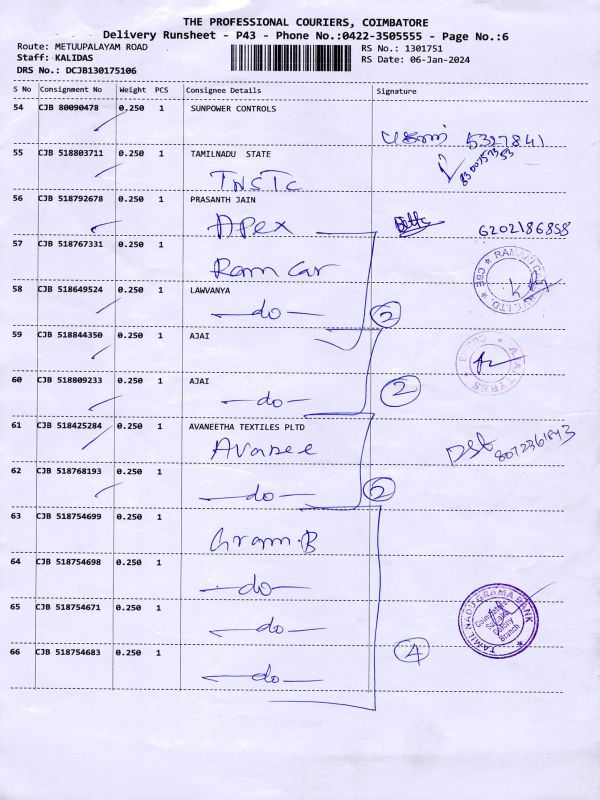 THE PROFESSIONAL COURIERS, COIMBATORE
Delivery Runsheet - P43 - Phone No.:0422-3505555 - Page No.:6
Route: METUUPALAYAM ROAD
RS No.: 1301751
Staff: KALIDAS
RS Date: 06-Jan-2024
DRS No.: DCJB130175106
S No Consignment No Weight PCS Consignee Details Signature
54 CJB 80090478 0.250 1 SUNPOWER CONTROLS
5327841
55 CJB 518803711 0.250 1 TAMILNADU STATE
TNSTC
56 CJB 518792678 0.250 1 PRASANTH JAIN
Apex 6202186858
57 CJB 518767331 0.250 1
Ram Car
58 CJB 518649524 0.250 1 LAWVANYA
-do- 2
59 CJB 518844350 0.250 1 AJAI
60 CJB 518809233 0.250 1 AJAI
-do- 2
61 CJB 518425284 0.250 1 AVANEETHA TEXTILES PLTD
Avanee
62 CJB 518768193 0.250 1
-do- 2
63 CJB 518754699 0.250 1
Gram.B
64 CJB 518754698 0.250 1
-do-
65 CJB 518754671 0.250 1
-do-
TAMIL NADU GRAMA BANK
Colony
Branch
66 CJB 518754683 0.250 1
-do- 4